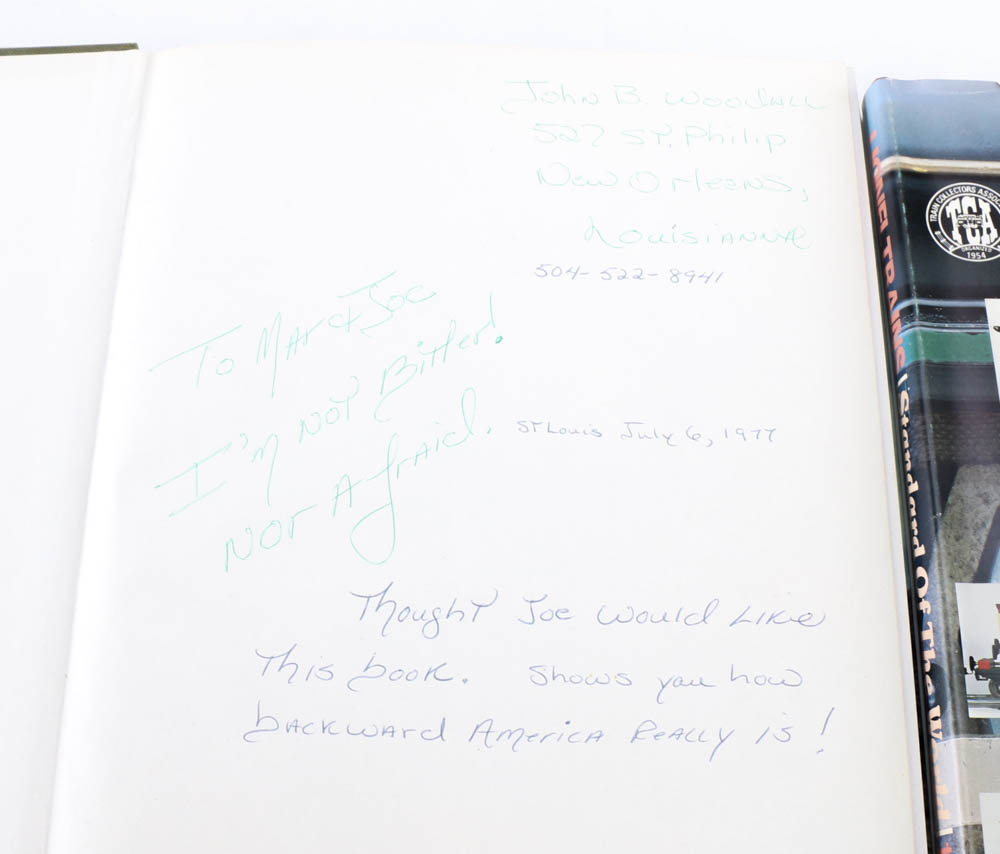 John B. Woodall
527 ST. Philip
New Orleans,
Louisianne
504-522-8941
To Mar & Joe
I'm NOT Bitter!
NOT Afraid.
ST Louis July 6, 1977
Thought Joe would Like
This book. Shows you how
backward America Really is!
TRAIN COLLECTORS ASSOC
TCA
ORGANIZED
1954
LIONEL TRAINS: Standard Of The World